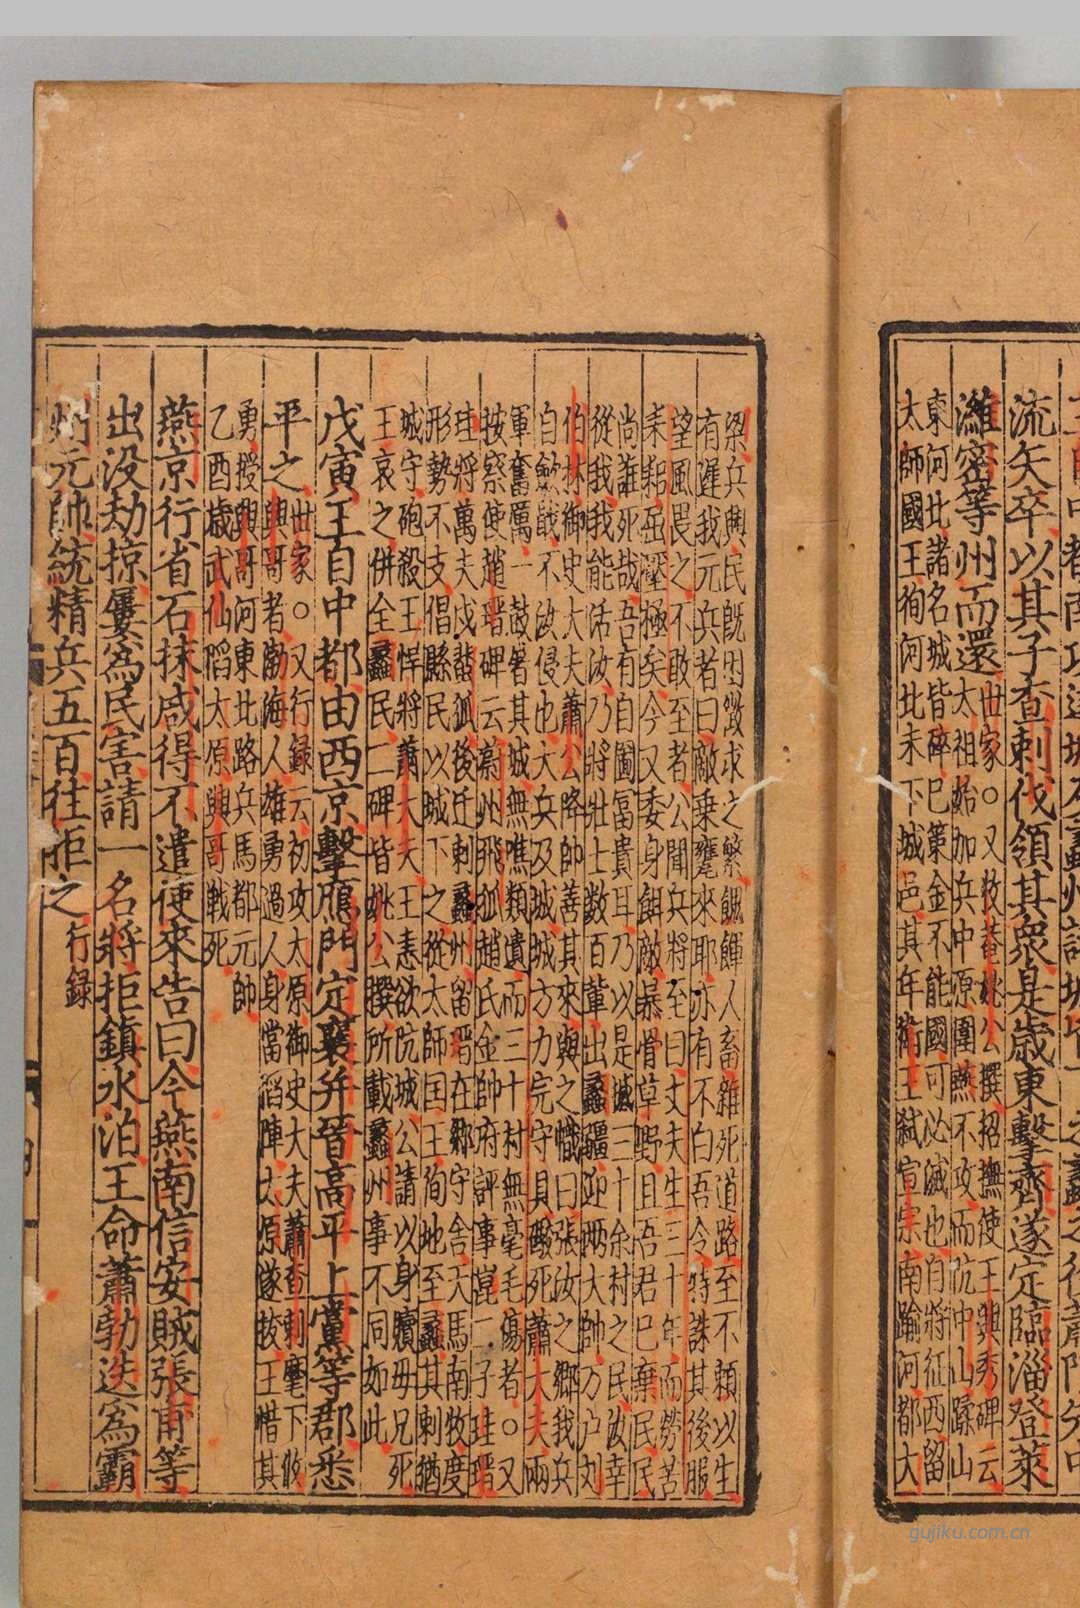 流矢卒以其子查剌代領其衆是歲東擊齊遂定臨淄登萊
濰密等州而還
世家○又牧菴姚公撰招撫使王興秀碑云
太祖始加兵中原圍燕不攻而屼中山蹂山
東河北諸名城皆碎已策金不能國可必滅也自將征西留
太師國王徇河北未下城邑其年衛王弑宣宗南踰河都大
梁兵興民旣困徵求之繁餽餫人畜雜死道路至不頼以生
有遲我元兵者曰敵乗釁來耶亦有不白吾令特誅其後服
望風畏之不敢至者公聞兵將至曰丈夫生三十年而勞苦
耒耜巫壓極矣今又委身餌敵暴骨草野且吾君已棄民民
尚誰死哉吾有自圖富貴耳乃以是城三十余村之民汝幸
從我我能活汝乃將壯士数百輩出蠡驅迎両大帥方户刘
伯林御史大夫蕭公降帥善其來與之幟曰張汝之鄉我兵
自歛戢不汝侵也大兵及城城方力完守具毆死蕭大夫兩
軍奮厲一鼓署其城無噍類遺而三十村無毫毛傷者○又
按察使趙瑨碑云蔚州飛狐趙氏金帥府評事崑二子珪瑨
珪將萬夫戍蜚狐後迁剌蠡州留瑨在鄉守舍天馬南牧度
形勢不支倡縣民以城下之從太師囯王徇地至蠡其剌猶
城守砲殺王悍將蕭大夫王恚欲屼城公請以身贖毋兄死
王哀之併全蠡民二碑皆姚公撰所載蠡州事不同如此
戊寅王自中都由西京擊鴈門定襄并晉高平上黨等郡悉
平之
世家○又行録云初攻太原御史大夫蕭查剌麾下攸
興哥者渤海人雄勇過人身當滔陣太原遂拔王惜其
勇授興哥河東北路兵馬都元帥
乙酉歲武仙䧟太原興哥戰死
燕京行省石抹咸得不遣使來告曰今燕南信安賊張甫等
出没劫掠屢爲民害請一名將拒鎮水泊王命蕭勃迭爲霸
州元帥統精兵五百往拒之
行録
gujiku.com.cn